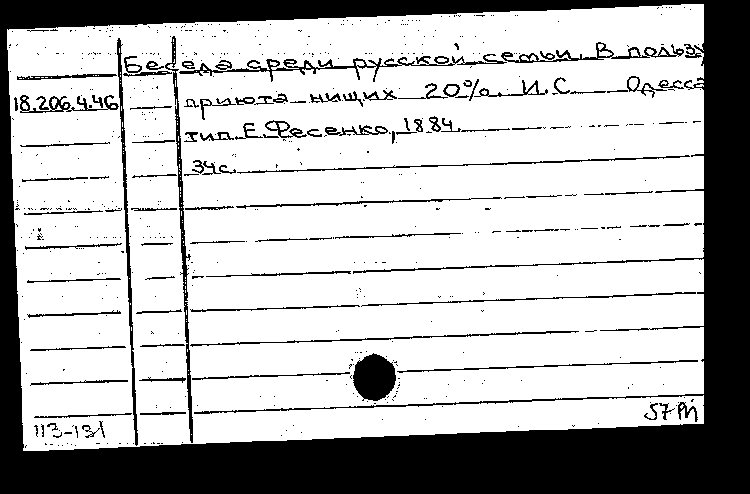 Беседа среди русской семьи. В пользу
18.206.4.46
приюта нищих 20%. И.С. Одесса
тип. Е. Фесенко, 1884.
34с.
113-131